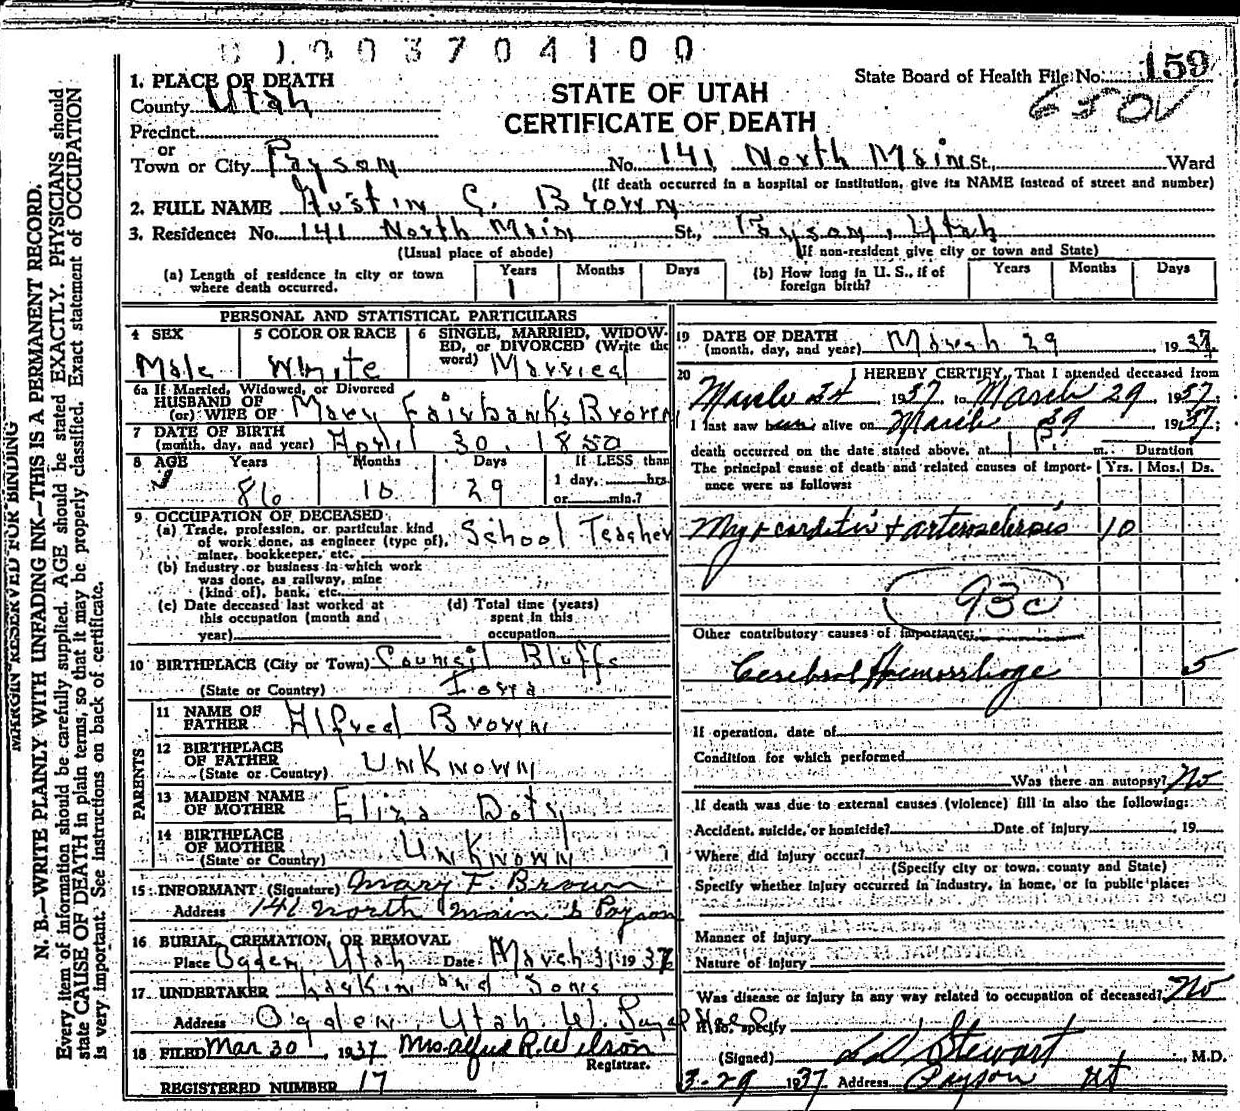 003704100
State Board of Health File No. 159
650V
STATE OF UTAH
CERTIFICATE OF DEATH
1. PLACE OF DEATH
County Utah
Precinct
or
Town or City Payson No. 141 North Main St., Ward
(If death occurred in a hospital or institution, give its NAME instead of street and number)
2. FULL NAME Austin C. Brown
3. Residence: No. 141 North Main St., Payson, Utah
(Usual place of abode) (If non-resident give city or town and State)
(a) Length of residence in city or town where death occurred. Years 1 Months Days
(b) How long in U. S., if of foreign birth? Years Months Days
PERSONAL AND STATISTICAL PARTICULARS
4 SEX Male
5 COLOR OR RACE White
6 SINGLE, MARRIED, WIDOWED, or DIVORCED (Write the word) Married
6a If Married, Widowed, or Divorced
HUSBAND OF
(or) WIFE OF Mary Fairbanks Brown
7 DATE OF BIRTH
(month, day, and year) April 30, 1850
8 AGE Years 86 Months 10 Days 29 If LESS than 1 day, hrs. or min.?
9 OCCUPATION OF DECEASED
(a) Trade, profession, or particular kind
of work done, as engineer (type of),
miner, bookkeeper, etc. School Teacher
(b) Industry or business in which work
was done, as railway, mine
(kind of), bank, etc.
(c) Date deceased last worked at
this occupation (month and
year)
(d) Total time (years)
spent in this
occupation
10 BIRTHPLACE (City or Town) Council Bluffs
(State or Country) Iowa
PARENTS
11 NAME OF FATHER Alfred Brown
12 BIRTHPLACE OF FATHER
(State or Country) Unknown
13 MAIDEN NAME OF MOTHER Eliza Doty
14 BIRTHPLACE OF MOTHER
(State or Country) Unknown
15 INFORMANT (Signature) Mary F. Brown
Address 141 North Main S Payson
16 BURIAL, CREMATION, OR REMOVAL
Place Ogden, Utah Date March 31 1937
17 UNDERTAKER Larkin and Sons
Address Ogden, Utah
18 FILED Mar 30, 1937 Mrs Alfred R. Wilson
Registrar.
REGISTERED NUMBER 17
19 DATE OF DEATH
(month, day, and year) March 29 1937
20 I HEREBY CERTIFY, That I attended deceased from
March 24, 1937 to March 29 1937;
I last saw him alive on March 29 1937;
death occurred on the date stated above, at 1 P. m. Duration
The principal cause of death and related causes of importance were as follows: Yrs. Mos. Ds.
Myocarditis + arteriosclerosis 10
93c
Other contributory causes of importance:
Cerebral Haemorrhage 5
If operation, date of
Condition for which performed
Was there an autopsy? No
If death was due to external causes (violence) fill in also the following:
Accident, suicide, or homicide? Date of injury , 19
Where did injury occur?
(Specify city or town, county and State)
Specify whether injury occurred in industry, in home, or in public place:
Manner of injury
Nature of injury
Was disease or injury in any way related to occupation of deceased? No
If so, specify
(Signed) Stewart, M.D.
3-29 1937 Address Payson Ut
MARGIN RESERVED FOR BINDING
N. B.—WRITE PLAINLY WITH UNFADING INK—THIS IS A PERMANENT RECORD.
Every item of information should be carefully supplied. AGE should be stated EXACTLY. PHYSICIANS should
state CAUSE OF DEATH in plain terms, so that it may be properly classified. Exact statement of OCCUPATION
is very important. See instructions on back of certificate.